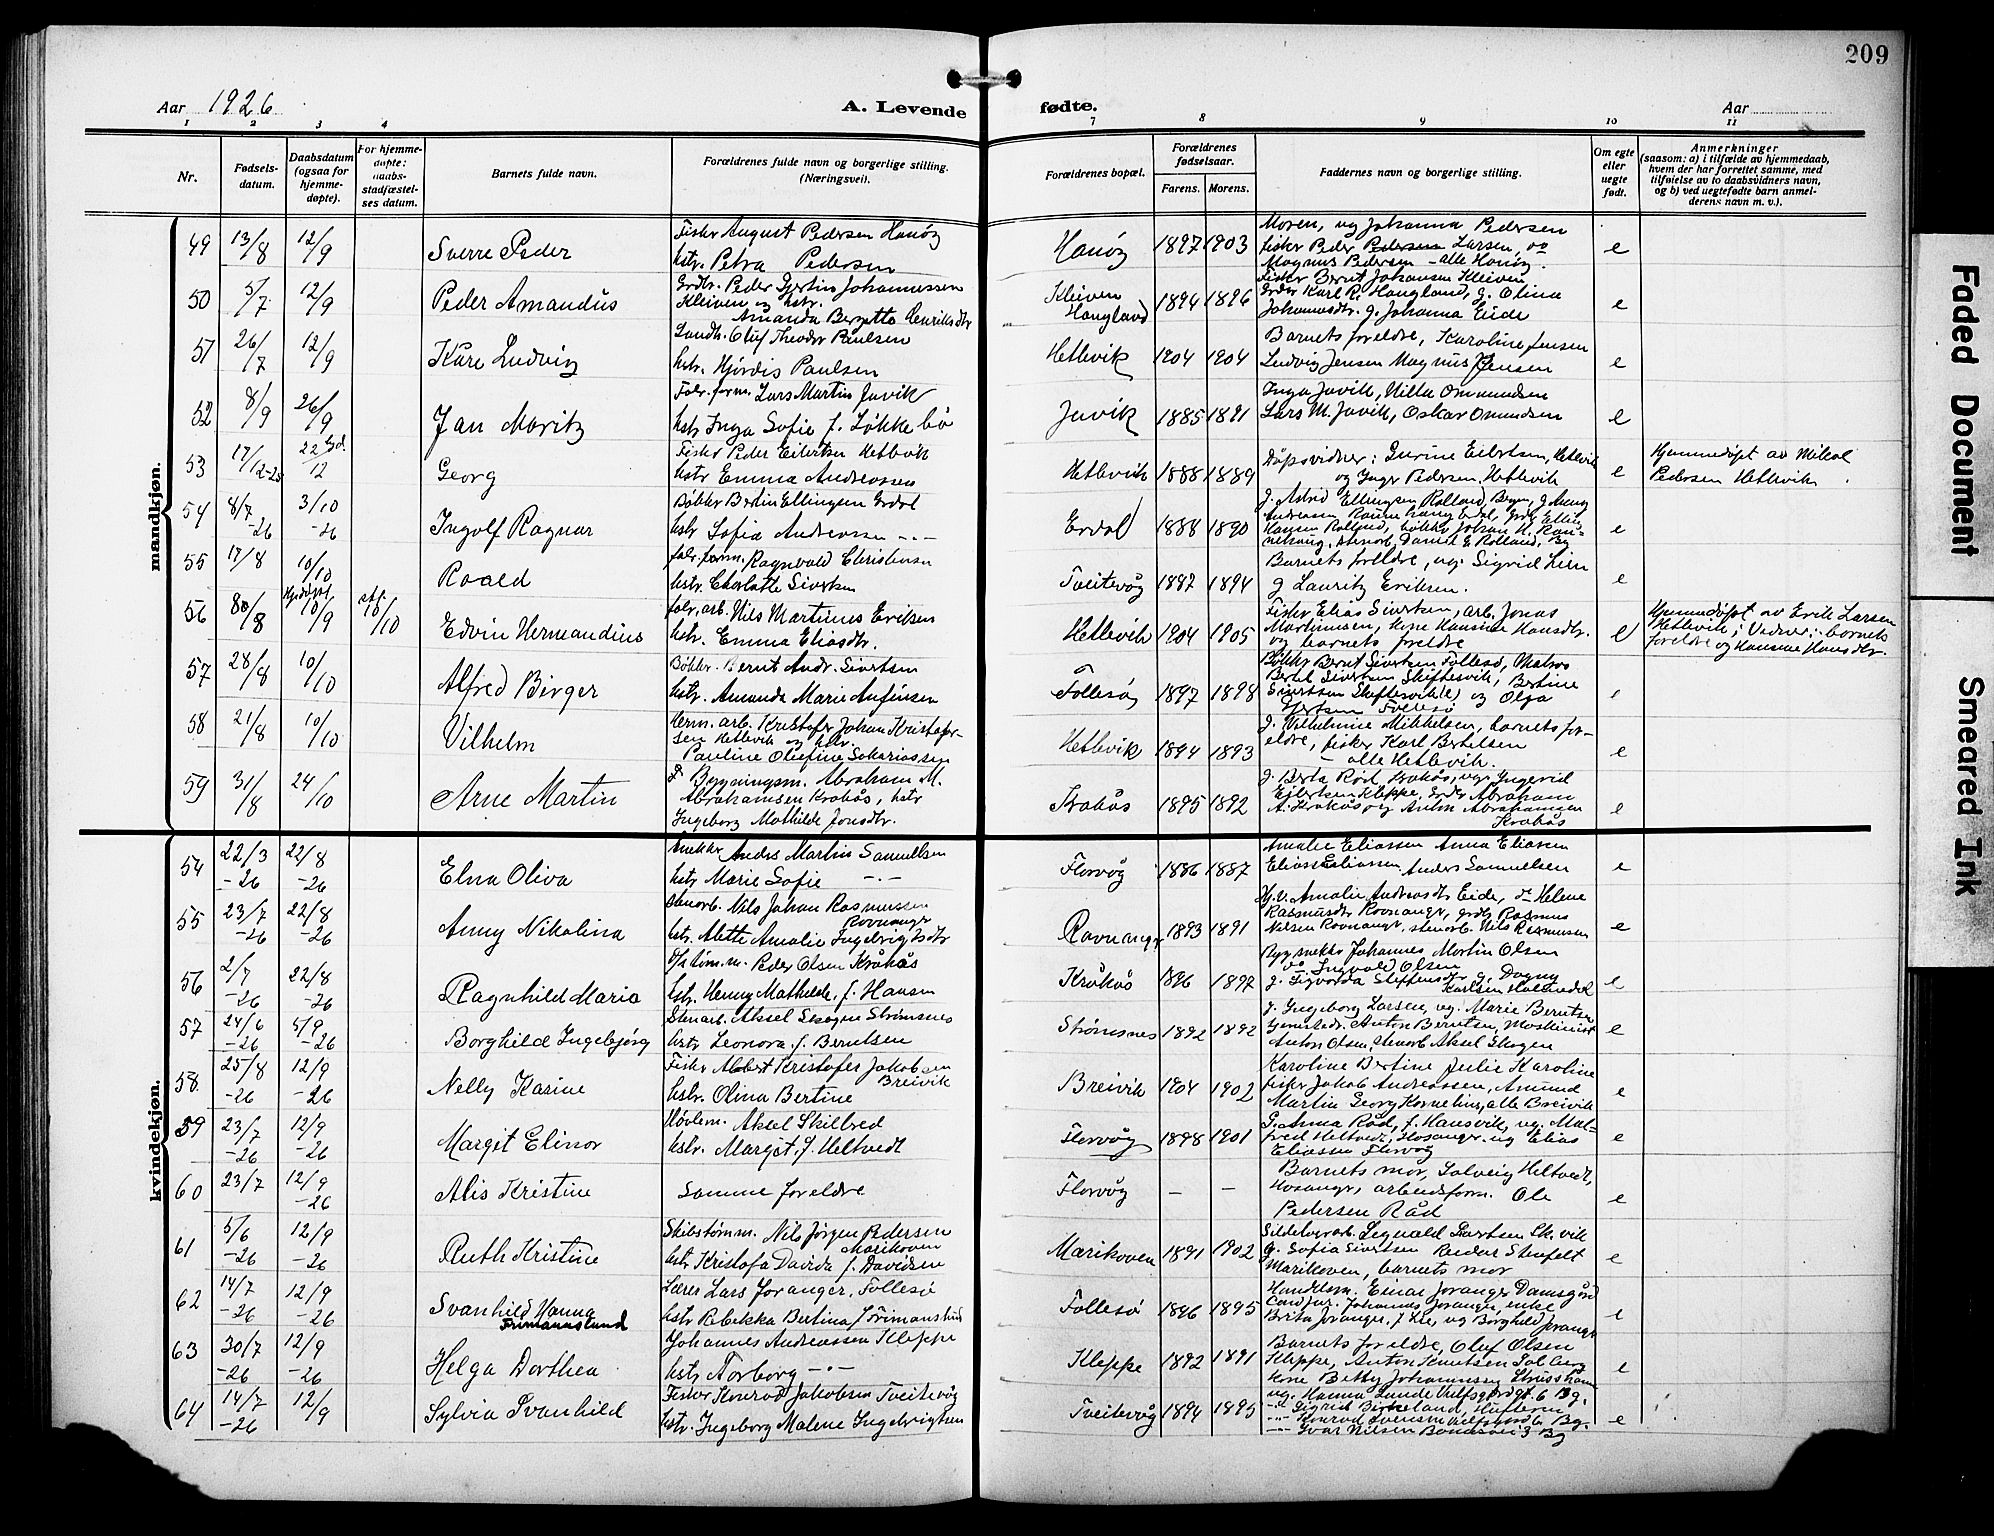 209
Aar 1926
A. Levende fødte.
Aar
1 2 3 4 7 8 9 10 11
Nr.
Fødsels-
datum.
Daabsdatum
(ogsaa for
hjemme-
døpte).
For hjemme-
døpte:
daabs-
stadfæstel-
ses datum.
Barnets fulde navn.
Forældrenes fulde navn og borgerlige stilling.
(Næringsvei).
Forældrenes bopæl.
Forældrenes
fødselsaar.
Farens. Morens.
Faddernes navn og borgerlige stilling.
Om egte
eller
uegte
født.
Anmerkninger
(saasom: a) i tilfælde av hjemmedaab,
hvem der har forrettet samme, med
tilføielse av to daabsvidners navn,
og b) ved uegtefødte barn anmel-
derens navn m. v.).
mandkjøn.
49 13/8 12/9 Sverre Peder
Fisker August Pedersen Hanøy
hstr. Petra Pedersen
Hanøy 1897 1903
Moren, ug Johanna Pedersen
fisker Peder Pedersen Larsen, do
Magnus Pedersen - alle Hanøy.
e
50 5/7 12/9 Peder Amandus
Grdbr. Peder Gjertin Johannessen
Kleiven og hstr.
Amanda Bergitte Henriksdtr
Kleiven
Haugland 1894 1896
Fisker Bernt Johansen Kleiven
Grdbr Karl R. Haugland, g. Olina
Johannesdtr. g. Johanna Eide
e
51 26/7 12/9 Kåre Ludvig
Landh. Oluf Theodor Paulsen
hstr. Hjördis Paulsen
Hetlevik 1904 1904
Barnets foreldre, Karoline Jensen
Ludvig Jensen Magnus Jensen
e
52 8/9 26/9 Jan Moritz
Fabr. form. Lars Martin Juvik
hstr Inga Sofie f. Løkkebö
Juvik 1885 1891
Inga Juvik, Nilla Ommundsen
Lars M. Juvik, Oskar Omundsen
e
53 17/12-25 22/12 Georg
Fisker Peder Eilertsen Hetlevik
hstr Emma Andreassen
Hetlevik 1888 1889
Dåpsvidner: Gurine Eilertsen, Hetlevik
og Inger Pedersen, Hetlevik
e
Hjemmedøpt av Mikal
Pedersen Hetlevik
54 8/7 -26 3/10 -26 Ingolf Ragnar
Bøkker Bertin Ellingsen Erdal
hstr Sofie Andreassen -"-
Erdal 1884 1890
g. Astrid Ellingsen Rolland, Bergen,
e
55 17/8 10/10 Roald
fabr. form. Ragnvald Christensen
hstr. Charlotte Sivertsen
Tveitevåg 1887 1894
Barnets foreldre, ug. Sigrid Lien
g Lauritz Eriksen.
e
56 30/8 Hjedøpt 10/9 stf. 10/10 Edvin Hermandius
fabr. arb. Nils Martinus Eriksen
hstr. Emma Eliasdtr.
Hetlevik 1904 1905
Fisker Elias Sivertsen, arb. Jonas
Martinussen, Hansine Hansdtr.
og barnets foreldre
e
Hjemmedøpt av Erik Larsen
Hetlevik; Vidner: barnets
foreldre og Hansine Hansdtr.
57 28/8 10/10 Alfred Birger
Bøkker. Bernt Andr. Sivertsen
hstr. Amanda Marie Anfinsen
Follesø 1897 1898
Bøkker Bernt Sivertsen Follesø, Matros
Bertel Sivertsen Skiftesvik, Bertine
Sivertsen Skiftesvik og Olga
e
58 21/8 10/10 Vilhelm
Herm. arb. Kristofer Johan Kristofer-
sen Hetlevik og hstr.
Pauline Olufine Sakariassen
Hetlevik 1894 1893
g. Vilhelmine Mikkelsen, barnets for-
eldre, fisker Karl Bertelsen
- alle Hetlevik.
e
59 31/8 24/10 Arne Martin
Bygningsm. Abraham M.
Abrahamsen Kråkås, hstr
Ingeborg Mathilde Jonsdtr.
Kråkås 1895 1892
g. Berta Råd, Kråkås, ug. Ingerid
Eilertsen Kleppe, Grdbr Abraham
A. Kråkås og Anton Abrahamsen
Kråkås
e
kvindekjøn.
54 22/3 -26 22/8 -26 Elna Oliva
Snekker Anders Martin Samuelsen
hstr Marie Sofie -"-
Florvåg 1886 1887
Amalie Eliassen Anna Eliassen
Elias Eliassen Anders Samuelsen
e
55 23/7 -26 22/8 -26 Anny Nikolina
stenarb. Nils Johan Rasmussen
Ravnanger
hstr. Alette Amalie Ingebrigtsdtr
Ravnanger 1893 1891
Hj.v. Amalie Andreasdtr Eide, do Helene
Rasmusdtr Ravnanger, grdbr Rasmus
Nilsen Ravnanger, stenarb. Nils Rasmussen
e
56 2/7 -26 22/8 -26 Ragnhild Marie
tømm. Peder Olsen Kråkås
hstr. Henny Mathilde, f. Hansen
Kråkås 1896 1897
Bygsnekker Johannes Martin Olsen
do Ingvald Olsen
e
57 24/6 -26 5/9 -26 Borghild Ingebjørg
Stenarb. Aksel Skogen Strømsnes
hstr Leonora f. Berntsen
Strømsnes 1892 1892
g. Ingeborg Larsen, ug. Marie Berntsen
Anton Berntsen, Maskinist
Anton Olsen, stenarb Aksel Skogen
e
58 25/8 -26 12/9 -26 Nelly Karine
Fisker Albert Kristofer Jakobsen
Breivik
hstr. Olina Bertine
Breivik 1904 1902
Karoline Bertine Julie Karoline
fisker Jakob Andreassen, Amund
Martin Georg Kornelius, alle Breivik
e
59 23/7 -26 12/9 -26 Margit Elinor
Høvlem. Aksel Skilbred
hstr. Margit, f. Heltvedt
Florvåg 1898 1901
G. Anna Råd, f. Hansvik, ug. Mal-
fred Heltvedt, Hosanger og Elias
Eliassen Florvåg
e
60 23/7 12/9 -26 Alis Kristine
Samme foreldre
Florvåg - -
Barnets mor, Solveig Heltvedt,
Hosanger, arbeidsform. Ole
Pedersen Råd
e
61 5/6 -26 12/9 -26 Ruth Kristine
Skibstømm. Nils Jørgen Pedersen
Marikoven
hstr Kristofa Davida f. Davidsen
Marikoven 1891 1902
g. Sofia Sivertsen Reidar Stenfelt
Marikoven, barnets mor
e
62 14/7 -26 12/9 -26 Svanhild Hanna
Frimannslund
Lærer Lars Joranger, Follesø
hstr Rebekka Bertina f. Frimannslund
Follesø 1896 1895
Handelsm. Einar Joranger Damsgård
Cand. jur. Johannes Joranger, enke
Brita Joranger, f Lie, ug Borghild Joranger
e
63 30/7 -26 12/9 -26 Helga Dorthea
Johannes Andreassen Kleppe
hstr Torborg -"-
Kleppe 1892 1891
Barnets foreldre, Oluf Olsen
Kleppe, Anton Knutsen Solberg
Kone Betty Johannessen
e
64 14/7 -26 12/9 Sylvia Svanhild
Fisker Konrad Jakobsen Tveitevåg
hstr. Ingeborg Malene Ingebrigtsen
Tveitevåg 1894 1895
ug. Hanna Lunde
-"- Sigrid Birkeland,
-"- Konrad Ivensen
-"- Ivar Nilsen
e
Faded Document
Smeared Ink